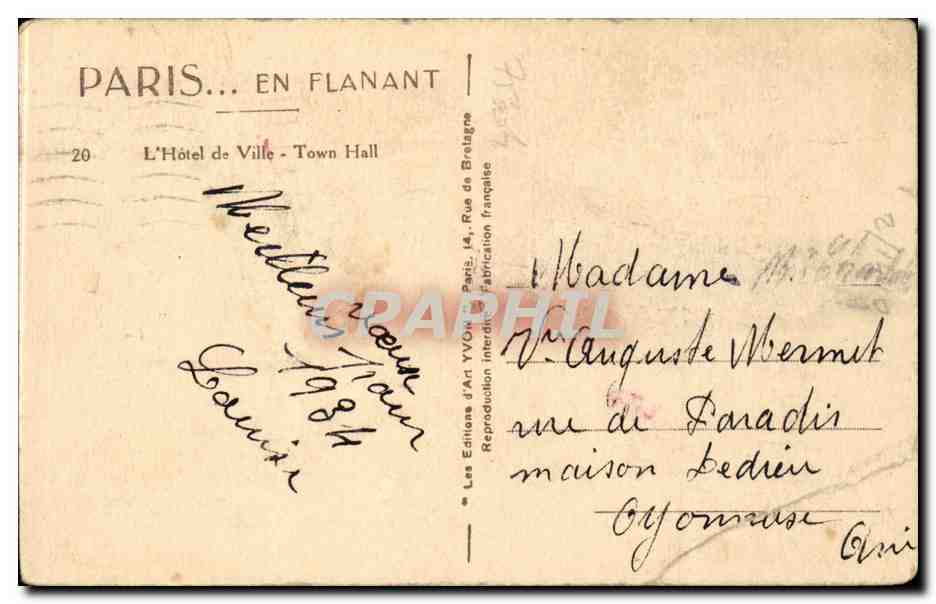 PARIS... EN FLANANT
20 L'Hôtel de Ville - Town Hall
Meilleurs vœux
pour 1934
Louise
* Les Editions d'Art YVON - Paris, 14, Rue de Bretagne
Reproduction interdite - Fabrication française
CARTAPHIL
Madame
Vve Auguste Mermet
rue de Paradis
maison Dedieu
Oyonnaxe
Ain